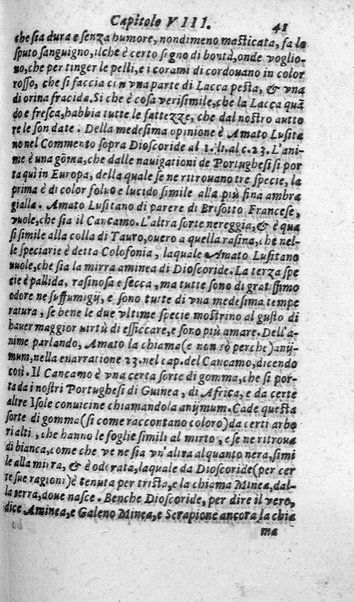 Capitolo VIII. 41
che sia dura e senza humore, nondimeno masticata, fa lo
sputo sanguigno, ilche è certo segno di bontà, onde voglio-
no, che per tinger le pelli, e i corami di cordouano in color
rosso, che si faccia cõ vna parte di Lacca pesta, & vna
di orina fracida. Sì che è cosa verisimile, che la Lacca quã
do e fresca, habbia tutte le fattezze, che dal nostro autto
re le son date. Della medesima opinione è Amato Lusita
no nel Commento sopra Dioscoride al 1. li. al c. 23. L'ani-
me è una gõma, che dalle nauigationi de Portughesi si por
ta qui in Europa, della quale se ne ritrouano tre specie, la
prima è di color foluo e lucido simile alla più fina ambra
gialla. Amato Lusitano di parere di Brisotto Francese,
vuole, che sia il Cancamo. L'altra sorte nereggia, & è qua
si simile alla colla di Tauro, ouero a quella rasina, che nel-
le speciarie è detta Colofonia, laquale Amato Lusitano
vuole, che sia la mirra aminea di Dioscoride. La terza spe
cie è pallida, rasinosa e secca, ma tutte sono di gratissimo
odore ne suffumigij, e sono tutte di una medesima tempe
ratura, se bene le due vltime specie mostrino al gusto di
hauer maggior virtù di essiccare, e sono più amare. Dell'a-
nime parlando, Amato la chiama (e non sò perche) anij-
mum, nella enarratione 23. nel cap. del Cancamo, dicendo
così. Il Cancamo è vna certa sorte di gomma, che si por-
ta da i nostri Portughesi di Guinea, di Africa, e da certe
altre Isole conuicine chiamandola anijmum. Cade questa
sorte di gomma (si come raccontano coloro) da certi arbo
ri alti, che hanno le foglie simili al mirto, e se ne ritroua
di bianca, come che ve ne sia vn'altra alquanto nera, simi
le alla mirra, & è odorata, laquale da Dioscoride (per cer
te sue ragioni) è tenuta per trista, e la chiama Minea, dal-
la terra, doue nasce. Benche Dioscoride, per dire il vero,
dice Aminea, e Galeno Minea, e Serapione ancora la chia
ma